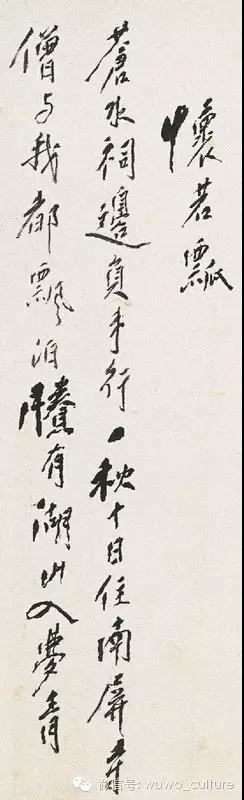 懷若瓢
蒼水祠邊負手行一秋十日住南屏寺
僧与我都飄泊賸有湖山入夢青
微信号: wuwo_culture